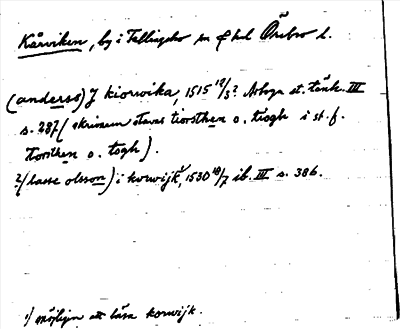 Kårviken, by i Tellingsbo sn Örebro l.
(anderss) J kiorwika, 1515 12/3? Arboga st. tänk. III
s. 287 (skrivaren stavar tiorsthen o. tiogh i st. f.
torsthen o. togh).
?(lasse olsson) i korwijk¹, 1530 18/7 ib. III s. 386.
¹) möjligen att läsa korwijk.